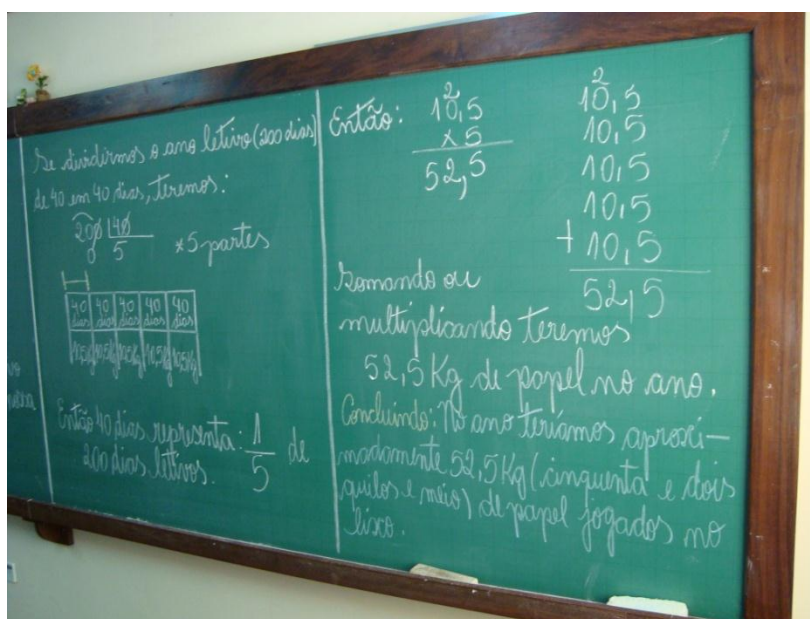 vo
Se dividirmos o ano letivo (200 dias)
de 40 em 40 dias, teremos:
200 40
0 5
*5 partes
40 40 40 40 40
dias dias dias dias dias
10,5Kg 10,5Kg 10,5Kg 10,5Kg 10,5Kg
Então 40 dias representa: 1/5 de
200 dias letivos.
Então:
2
10,5
×5
52,5
2
10,5
10,5
10,5
10,5
+ 10,5
52,5
Somando ou
multiplicando teremos
52,5 Kg de papel no ano.
Concluindo: No ano teríamos aproxi-
madamente 52,5Kg (cinquenta e dois
quilos e meio) de papel jogados no
lixo.